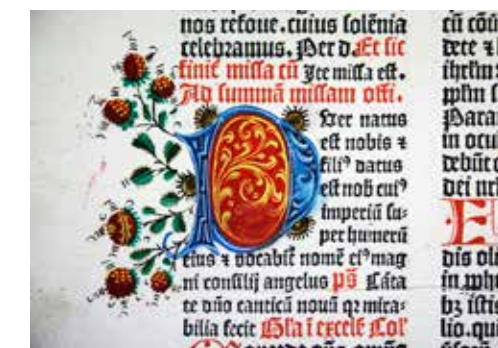 nos refoue.cuius ſolēnia
celebramus. Per d. Et ſic
finit miſſa cū Ite miſſa eſt.
Ad ſummā miſſam offi.
Puer natus
eſt nobis ⁊
filiꝰ datus
eſt nob cuiꝰ
imperiū ſu-
per humerū
eius ⁊ vocabit nomē eiꝰ mag
ni conſilij angelus pſ Cāta
te dño canticū nouū qꝛ mira-
bilia fecit Gl'a ī excelſ Col'
cū
dete ⁊
in ocu
dei ne
E
dis oli
in
bz iſtis
lio.qui